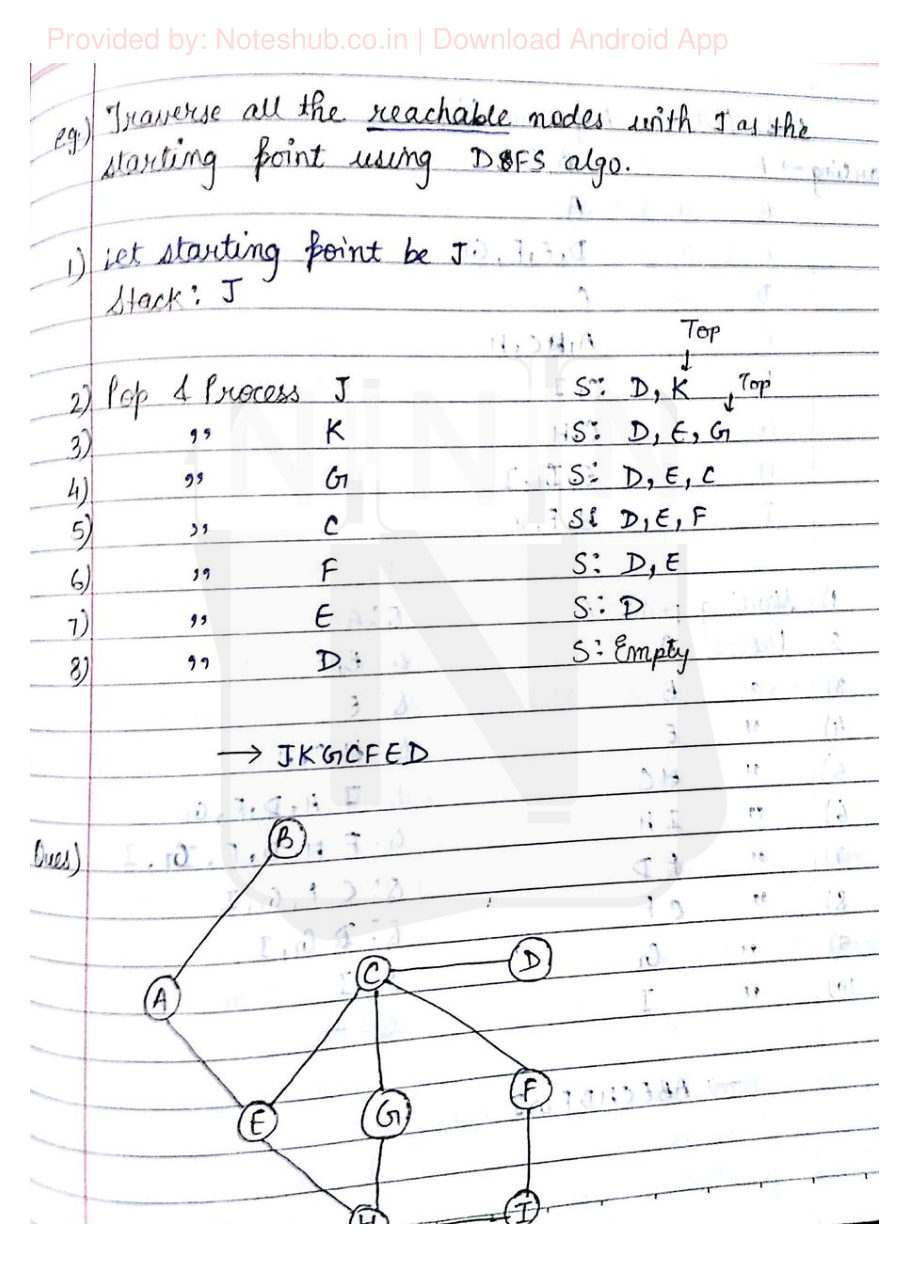 Provided by: Noteshub.co.in | Download Android App
eg.) Traverse all the reachable nodes with J as the
starting point using DFS algo.
1) Let starting point be J.
Stack: J
Top
2) Pop & Process J S: D, K Top
3) " K S: D, E, G
4) " G S: D, E, C
5) " C S: D, E, F
6) " F S: D, E
7) " E S: D
8) " D S: Empty
→ JKGCFED
Ques)
B
C D
A
F
E G
H I